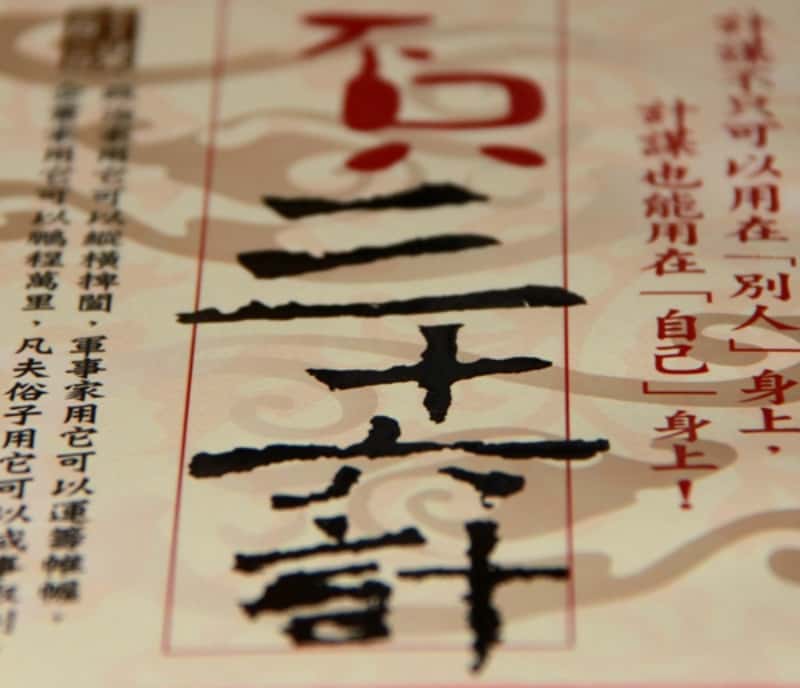 計謀不只可以用在「別人」身上，
計謀也能用在「自己」身上！
不只
三十六計
用它可以縱橫捭闔，軍事家用它可以運籌帷幄，
用它可以鵬程萬里，凡夫俗子用它可以成事